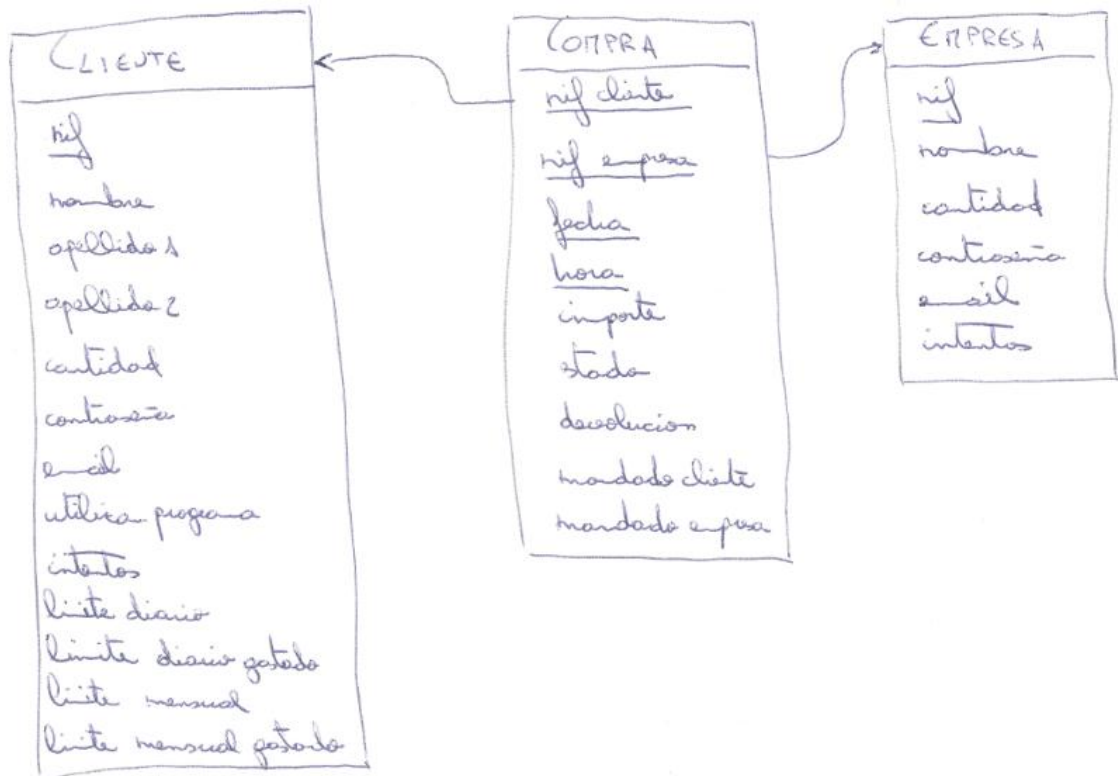 CLIENTE
nif
nombre
apellido 1
apellido 2
cantidad
contraseña
email
utiliza programa
intentos
limite diario
limite diario gastado
limite mensual
limite mensual gastado
COMPRA
nif cliente
nif empresa
fecha
hora
importe
estado
devolucion
mandado cliente
mandado empresa
EMPRESA
nif
nombre
cantidad
contraseña
email
intentos